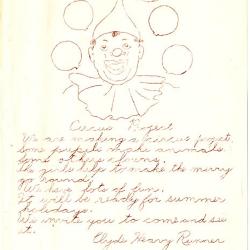 Circus Project
We are making a circus projet.
Some pupils make animals.
Some others clowns.
The girls help to make the merry
go round.
We have lots of fun.
It will be ready for summer
holidays.
We invite you to come and see
it.
Clyde Henry Renner